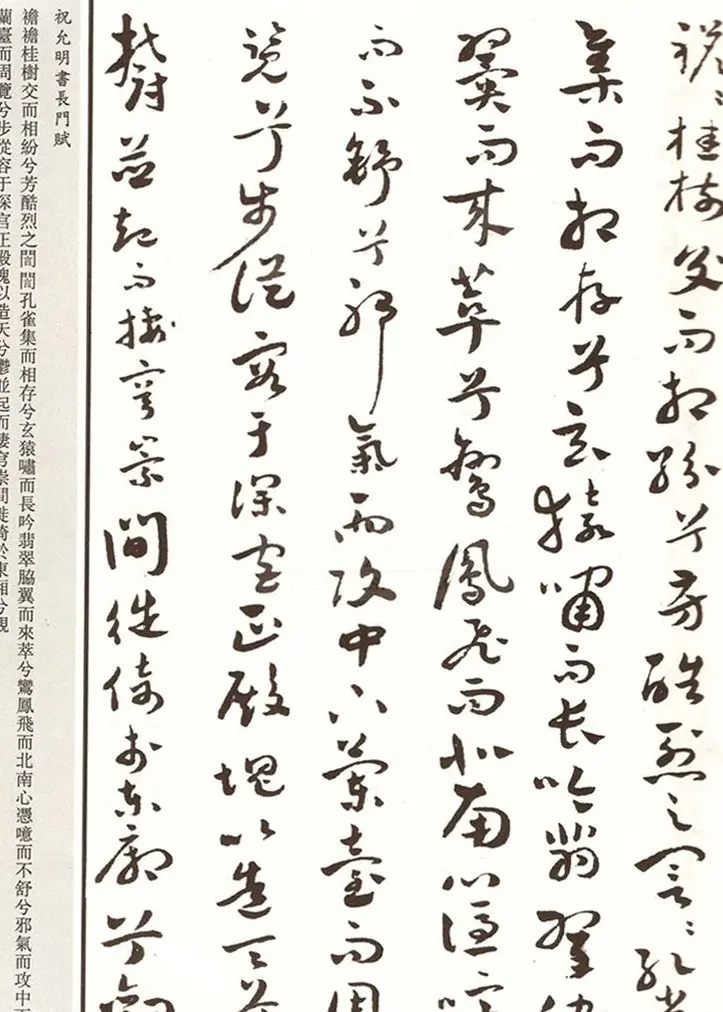 襜〻桂樹交而相紛兮芳酷烈之誾〻孔雀
集而相存兮玄猿嘯而長吟翡翠脇
翼而來萃兮鸞鳳飛而北南心憑噫
而不舒兮邪氣而攻中下蘭臺而周
覽兮步從容于深宮正殿塊以造天兮
鬱並起而棲穹崇間徙倚於東廂兮觀
祝允明書長門賦
襜襜桂樹交而相紛兮芳酷烈之誾誾孔雀集而相存兮玄猿嘯而長吟翡翠脇翼而來萃兮鸞鳳飛而北南心憑噫而不舒兮邪氣而攻中下
蘭臺而周覽兮步從容于深宮正殿塊以造天兮鬱並起而棲穹崇間徙倚於東廂兮觀